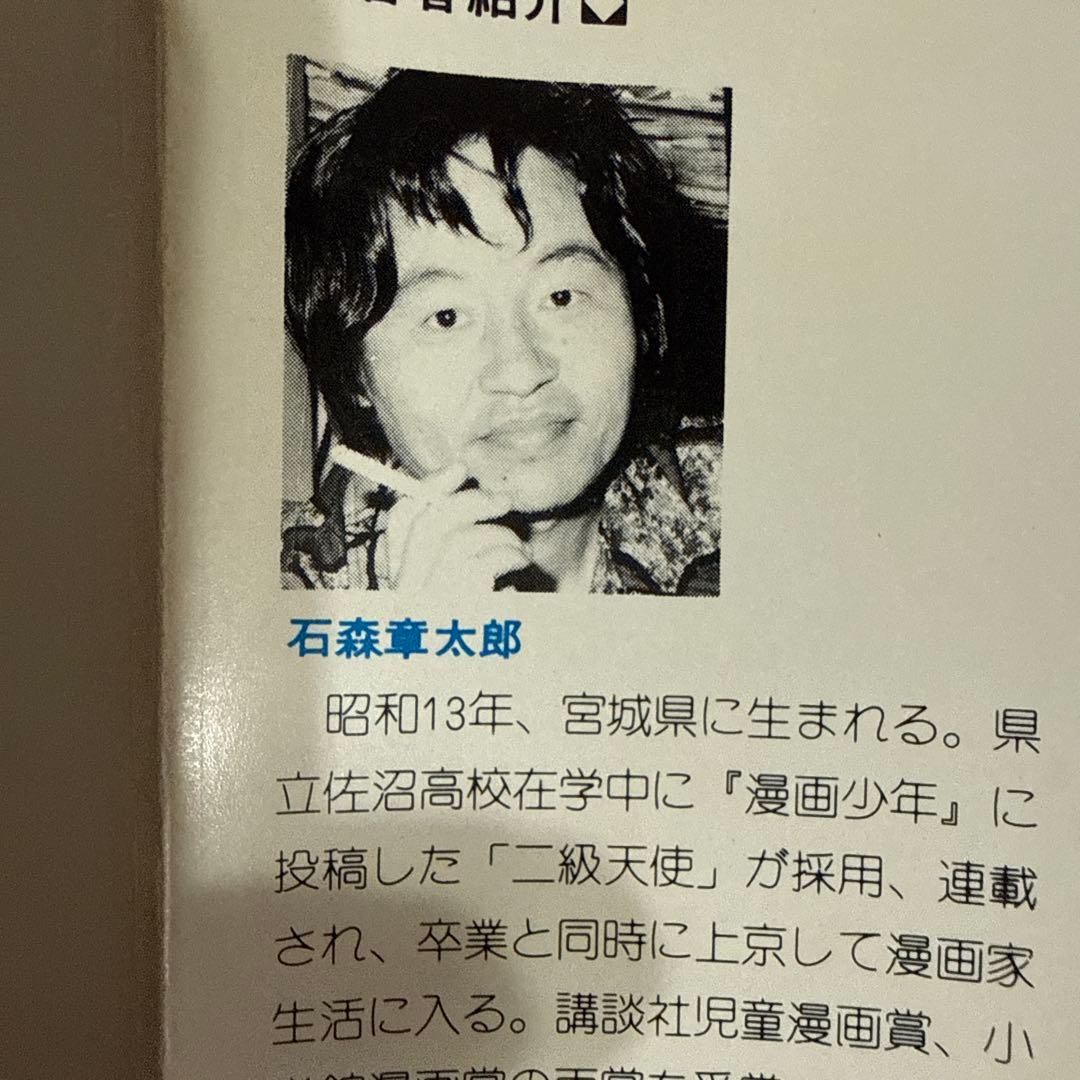 著者紹介
石森章太郎
昭和13年、宮城県に生まれる。県
立佐沼高校在学中に『漫画少年』に
投稿した「二級天使」が採用、連載
され、卒業と同時に上京して漫画家
生活に入る。講談社児童漫画賞、小